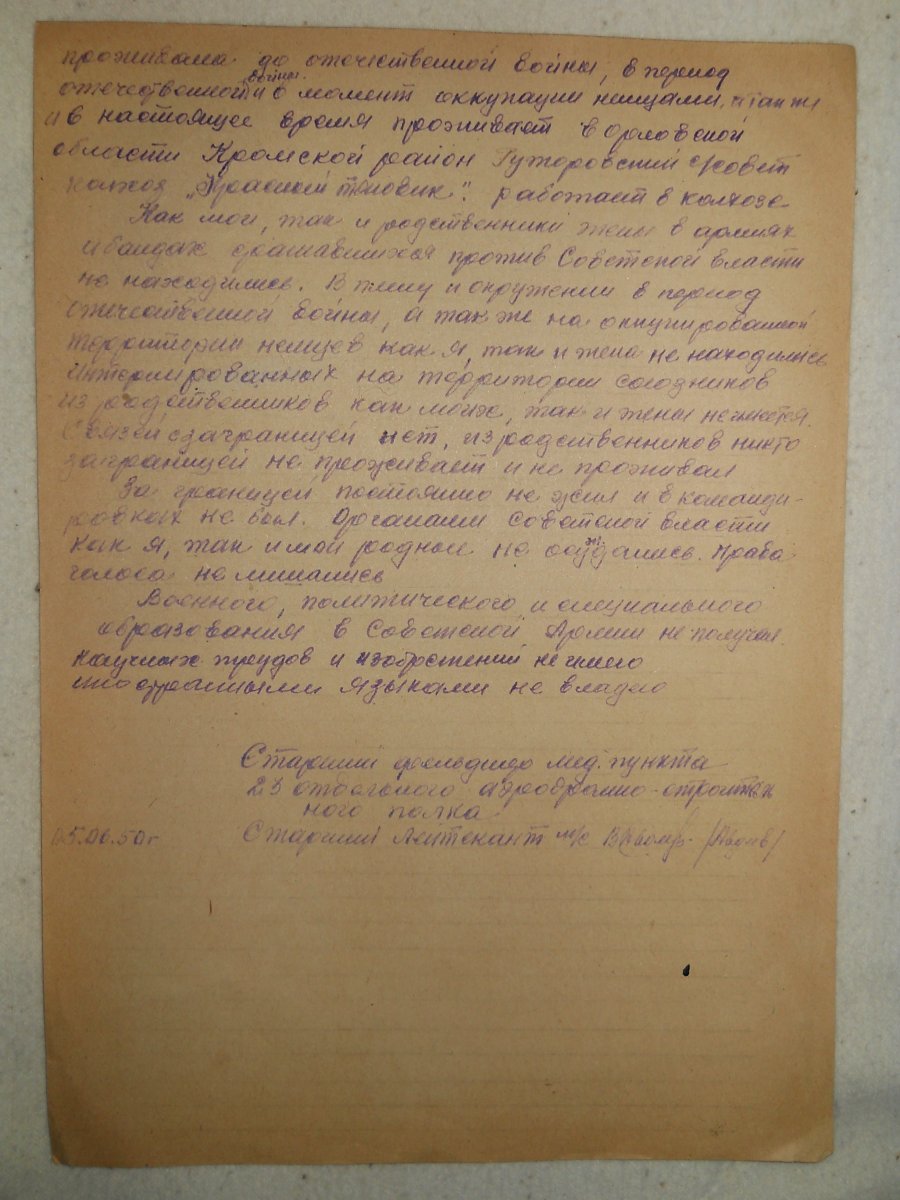 проживала до отечественной войны, в период
отечественной войны в момент оккупации немцами, а также
и в настоящее время проживает в орловской
области Кромской район Гуторовский с/совет
колхоз „Красный “. работает в колхозе
Как мои, так и родственники жены в армиях
и бандах сражавшихся против Советской власти
не находились. В плену и окружении в период
отечественной войны, а так же на оккупированной
территории немцев как я, так и жена не находились
Интернированных на территории союзников
из родственников как моих, так и жены не имеется.
Связей с заграницей нет, из родственников никто
заграницей не проживает и не проживал
За границей постоянно не жил и в команди-
ровках не был. Органами Советской власти
как я, так и мои родные не осуждались. Права
голоса не лишались
Военного, политического и специального
образования в Советской Армии не получал.
Научных трудов и изобретений не имею
иностранными языками не владею
Старший фельдшер мед. пункта
23 отдельного аэродромно-строитель
ного полка
05.06.50г Старший Лейтенант м/с